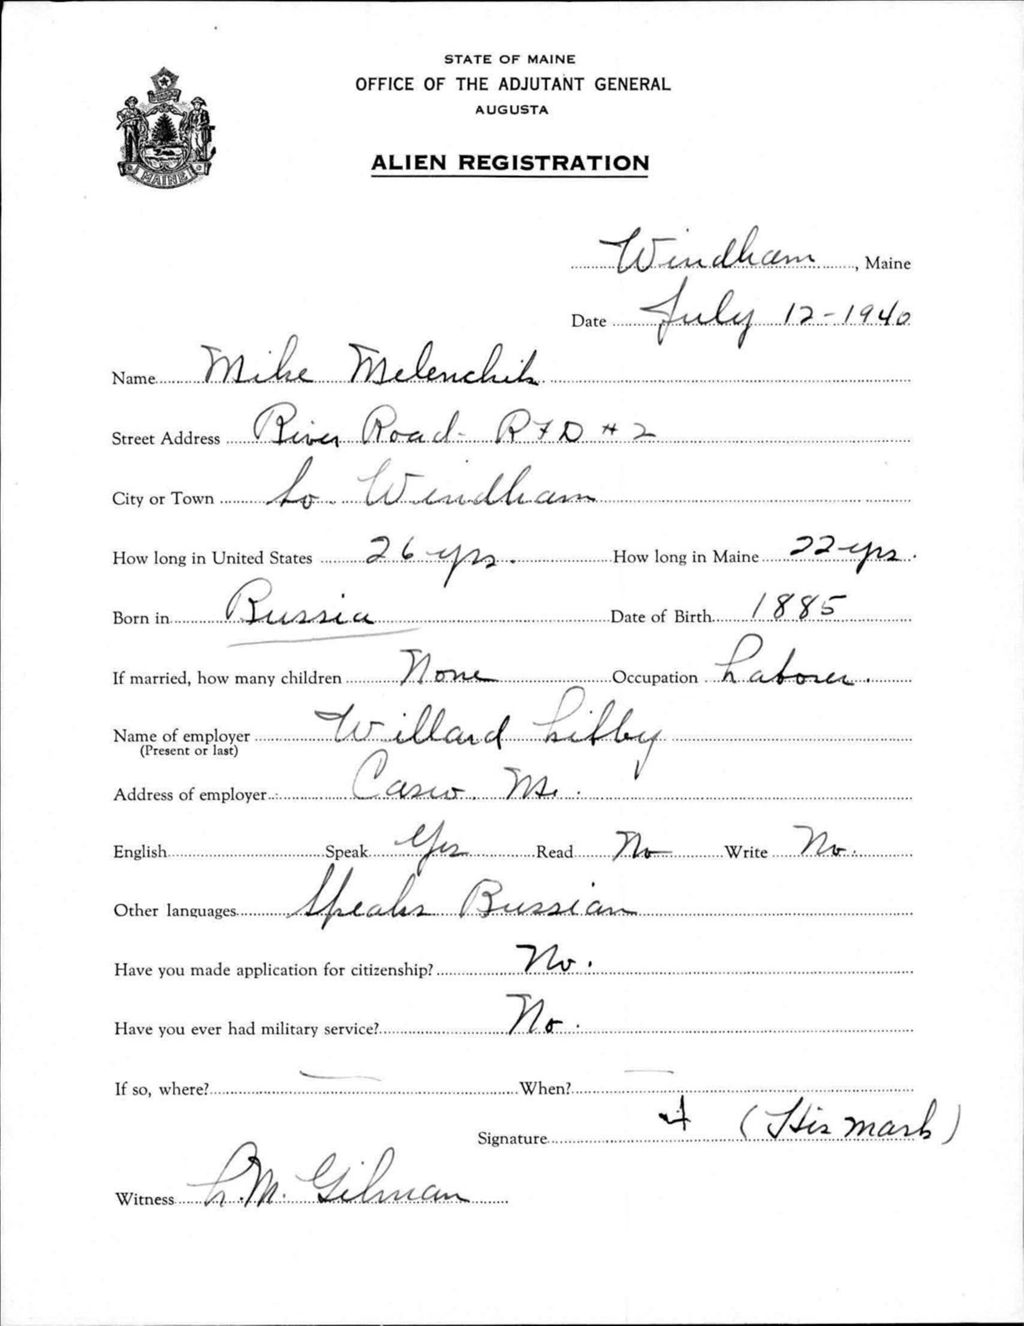 STATE OF MAINE
OFFICE OF THE ADJUTANT GENERAL
AUGUSTA
ALIEN REGISTRATION
MAINE
Windham, Maine
Date July 12-1940
Name Mike Melenchik
Street Address River Road- RFD #2
City or Town So. Windham
How long in United States 26 yrs. How long in Maine 22 yrs.
Born in Russia Date of Birth 1885
If married, how many children None Occupation Laborer.
Name of employer Willard Libby
(Present or last)
Address of employer Casco. Me.
English Speak Yes Read No Write No.
Other languages Speaks Russian
Have you made application for citizenship? No.
Have you ever had military service? No.
If so, where? — When? —
Signature (His mark)
Witness L.M. Gilman